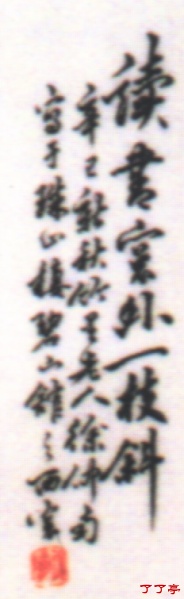 读书窗外一枝斜
辛巳新秋竹天老人徐仲南
写于珠山楼碧山馆之西窗
了了亭